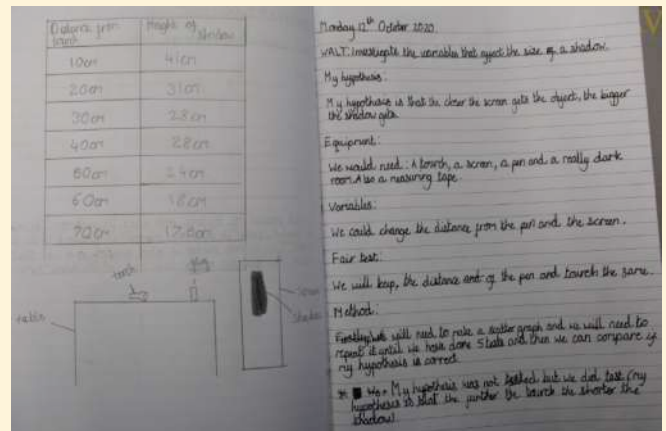 Distance from torch Height of shadow
10cm 41cm
20cm 31cm
30cm 28cm
40cm 28cm
50cm 24cm
60cm 18cm
70cm
torch
table
Monday 12th October 2020
WALT: Investigate the variables that affect the size of a shadow.
My hypothesis:
My hypothesis is that the closer the screen gets the object, the bigger
the shadow gets.
Equipment:
We would need: A tourch, a screen, a pen and a really dark
room. Also a measuring tape.
Variables:
We could change the distance from the pen and the screen.
Fair test:
We will keep, the distance and of the pen and tourch the same.
Method:
we will need to make a scatter graph and we will need to
repeat it until we have done 5 tests and then we can compare if
my hypothesis is correct.
My hypothesis was not tested but we did test (my
hypothesis is that the further the tourch the shorter the
shadow)